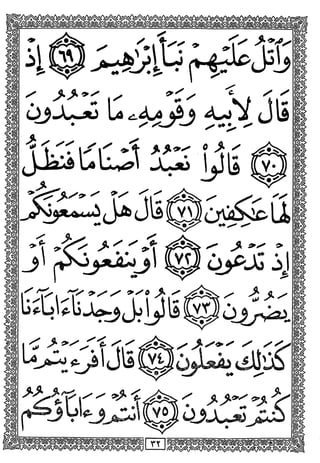 وَٱتۡلُ عَلَيۡهِمۡ نَبَأَ إِبۡرَٰهِيمَ ٦٩ إِذۡ
قَالَ لِأَبِيهِ وَقَوۡمِهِۦ مَا تَعۡبُدُونَ
٧٠ قَالُواْ نَعۡبُدُ أَصۡنَامٗا فَنَظَلُّ
لَهَا عَٰكِفِينَ ٧١ قَالَ هَلۡ يَسۡمَعُونَكُمۡ
إِذۡ تَدۡعُونَ ٧٢ أَوۡ يَنفَعُونَكُمۡ أَوۡ
يَضُرُّونَ ٧٣ قَالُواْ بَلۡ وَجَدۡنَآ ءَابَآءَنَا
كَذَٰلِكَ يَفۡعَلُونَ ٧٤ قَالَ أَفَرَءَيۡتُم مَّا
كُنتُمۡ تَعۡبُدُونَ ٧٥ أَنتُمۡ وَءَابَآؤُكُمُ
٣٢